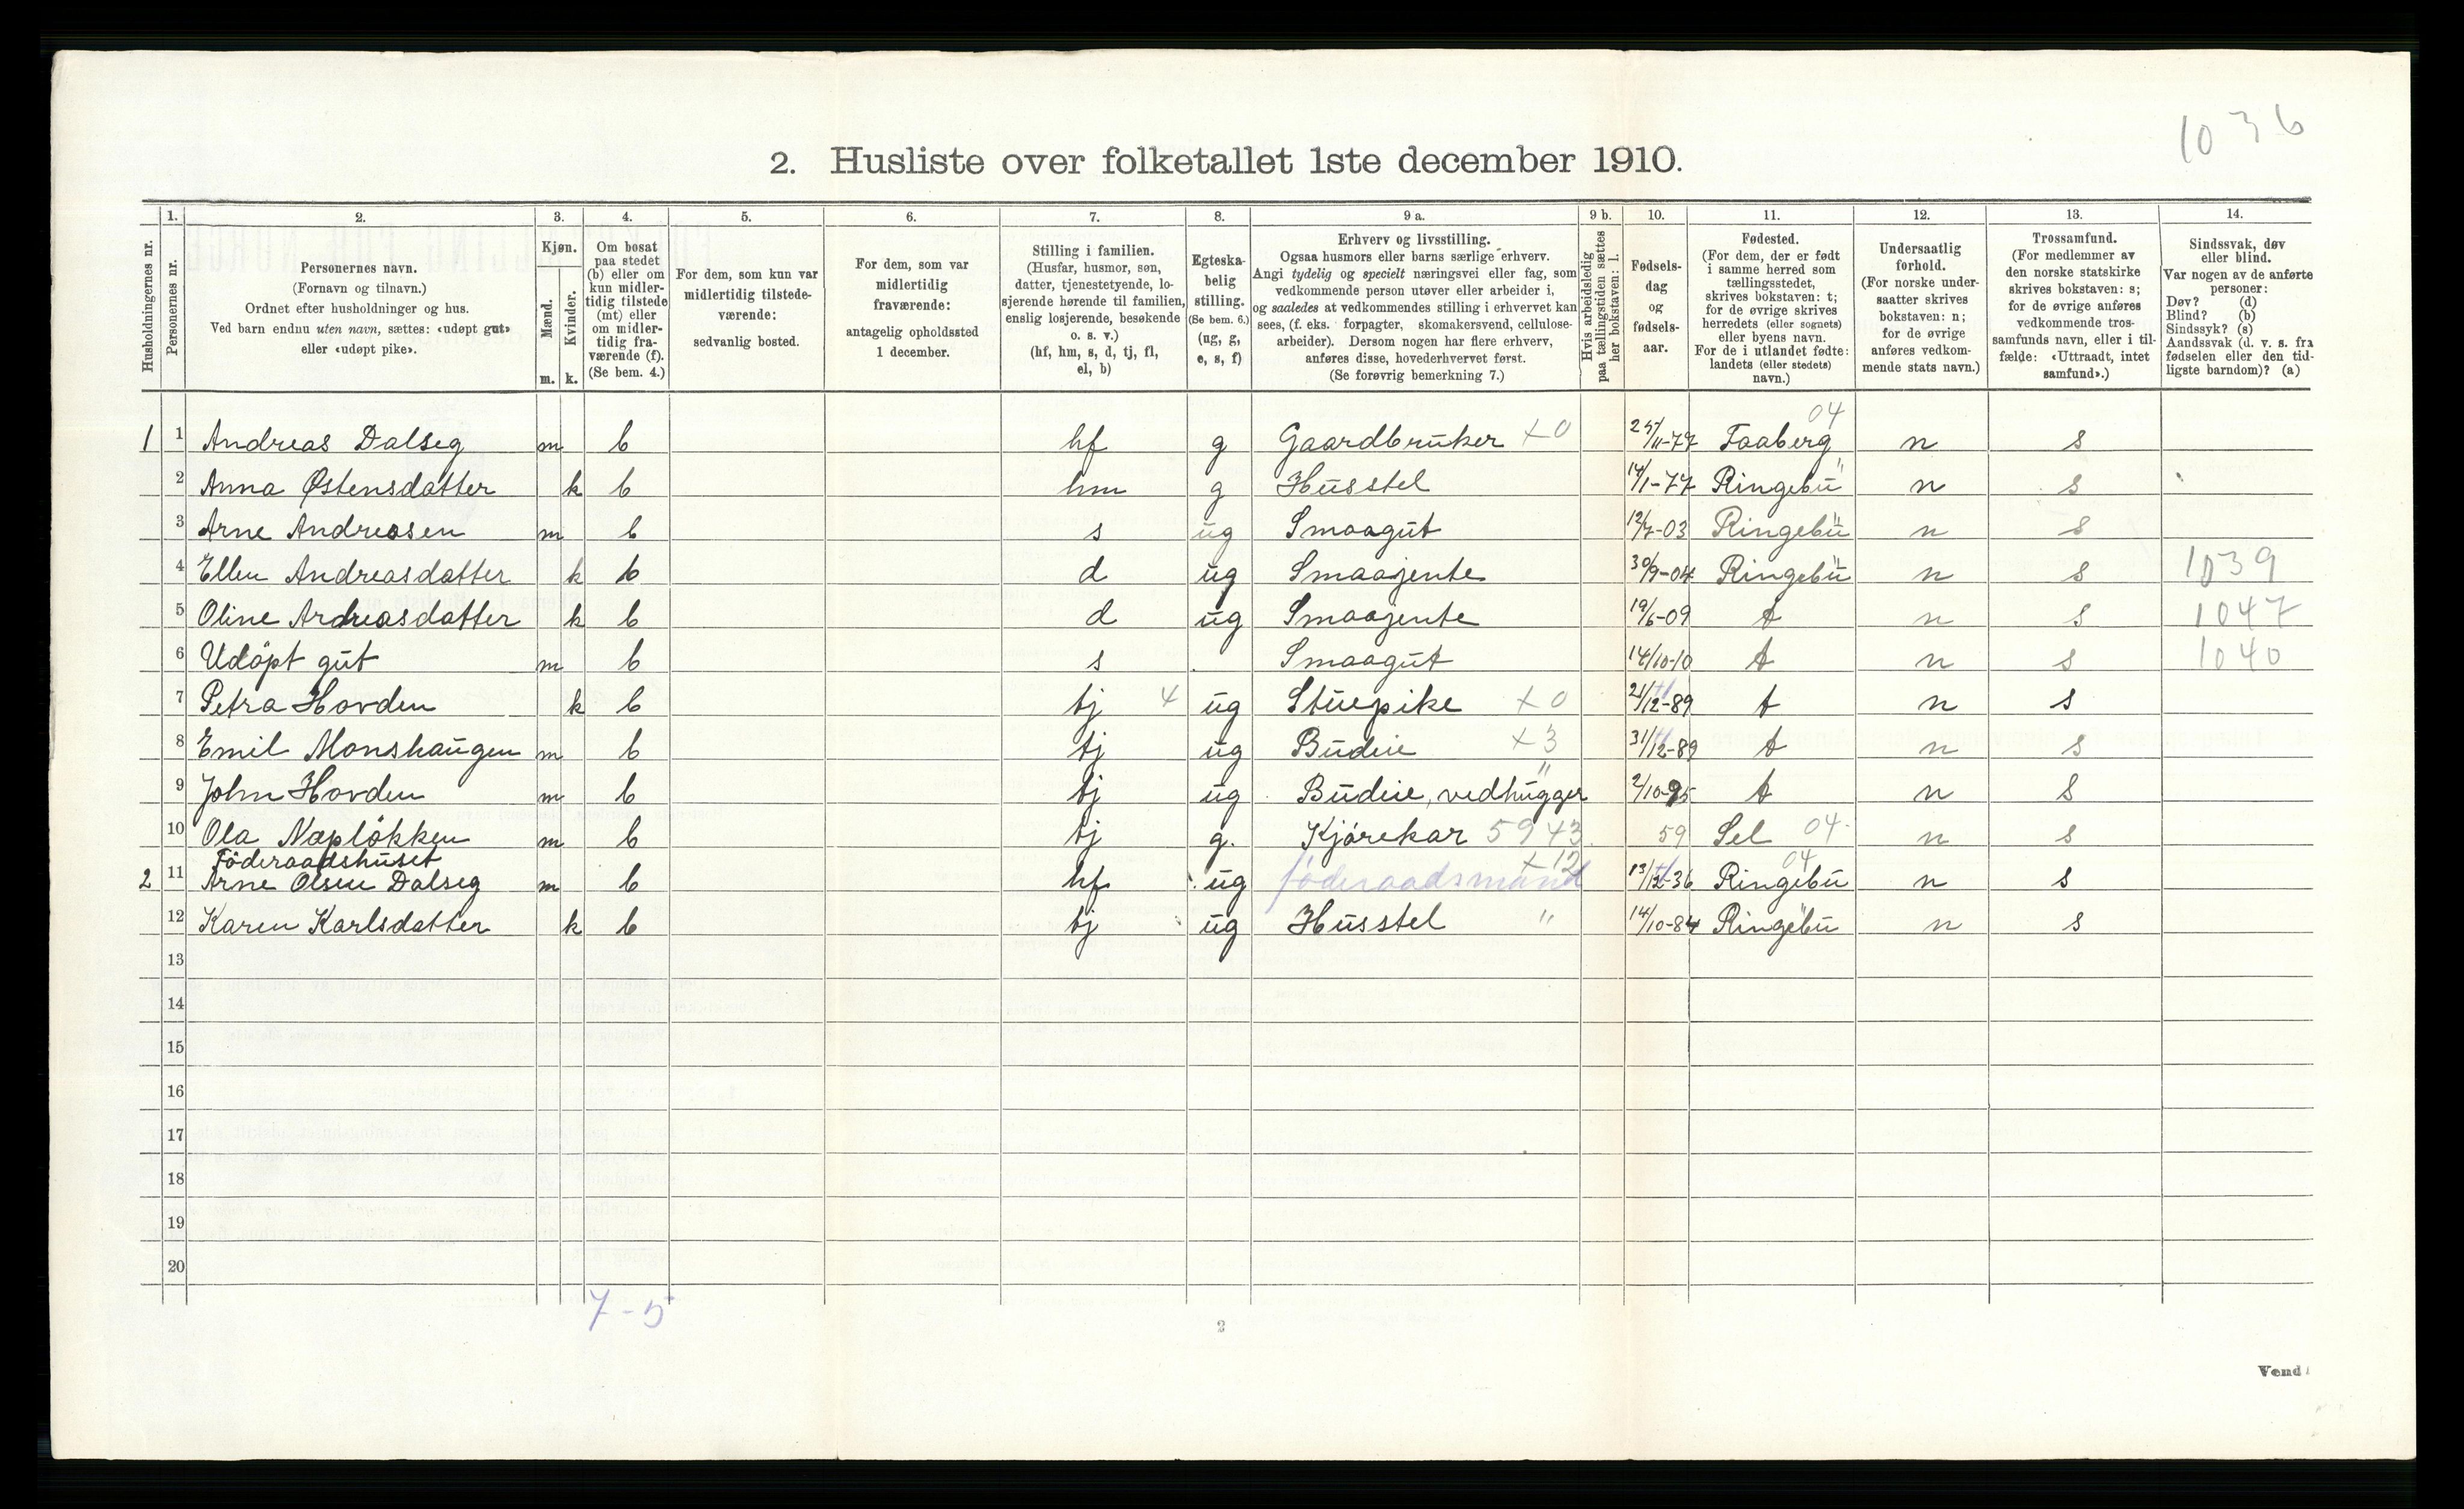 1036
2. Husliste over folketallet 1ste december 1910.
Husholdningernes nr.
1. Personernes nr.
2. Personernes navn. (Fornavn og tilnavn.) Ordnet efter husholdninger og hus. Ved barn endnu uten navn, sættes: «udøpt gut» eller «udøpt pike».
3. Kjøn. Mænd. m. Kvinder. k.
4. Om bosat paa stedet (b) eller om kun midlertidig tilstede (mt) eller om midlertidig fraværende (f). (Se bem. 4.)
5. For dem, som kun var midlertidig tilstedeværende: sedvanlig bosted.
6. For dem, som var midlertidig fraværende: antagelig opholdssted 1 december.
7. Stilling i familien. (Husfar, husmor, søn, datter, tjenestetyende, losjerende hørende til familien, enslig losjerende, besøkende o. s. v.) (hf, hm, s, d, tj, fl, el, b)
8. Egteskabelig stilling. (Se bem. 6.) (ug, g, e, s, f)
9 a. Erhverv og livsstilling. Ogsaa husmors eller barns særlige erhverv. Angi tydelig og specielt næringsvei eller fag, som vedkommende person utøver eller arbeider i, og saaledes at vedkommendes stilling i erhvervet kan sees, (f. eks. forpagter, skomakersvend, cellulosearbeider). Dersom nogen har flere erhverv, anføres disse, hovederhvervet først. (Se forøvrig bemerkning 7.)
9 b. Hvis arbeidsledig paa tællingstiden sættes her bokstaven: l.
10. Fødselsdag og fødselsaar.
11. Fødested. (For dem, der er født i samme herred som tællingsstedet, skrives bokstaven: t; for de øvrige skrives herredets (eller sognets) eller byens navn. For de i utlandet fødte: landets (eller stedets) navn.)
12. Undersaatlig forhold. (For norske undersaatter skrives bokstaven: n; for de øvrige anføres vedkommende stats navn.)
13. Trossamfund. (For medlemmer av den norske statskirke skrives bokstaven: s; for de øvrige anføres vedkommende trossamfunds navn, eller i tilfælde: «Uttraadt, intet samfund».)
14. Sindssvak, døv eller blind. Var nogen av de anførte personer: Døv? (d) Blind? (b) Sindssyk? (s) Aandssvak (d. v. s. fra fødselen eller den tidligste barndom)? (a)
04
1 1 Andreas Dalseg m b hf g Gaardbruker +0 25/11-77 Faaberg n s
2 Anna Østensdatter k b hm g Husstel 14/1-77 Ringebu " n s
3 Arne Andreasen m b s ug Smaagut 12/7-03 Ringebu " n s
4 Ellen Andreasdatter k b d ug Smaajente 30/9-04 Ringebu " n s 1039
5 Oline Andreasdatter k b d ug Smaajente 19/6-09 t n s 1047
6 Udöpt gut m b s Smaagut 14/10-10 t n s 1040
7 Petra Hovden k b tj 4 ug Stuepike +0 21/12-89 t n s
8 Emil Monshaugen m b tj ug Budeie +3 31/12-89 t n s
9 John Hovden m b tj ug Budeie, vedhugger " 2/10-95 t n s
10 Ola Næpløkken m b tj g. Kjørekar 5943 59 Sel 04 n s
Föderaadshuset
2 11 Arne Olsen Dalseg m b hf ug föderaadsmand +12 13/12-36 Ringebu 04 n s
12 Karen Karlsdatter k b tj ug Husstel " 14/10-84 Ringebu " n s
13
14
15
16
17
18
19
20
7 - 5
2
Vend!